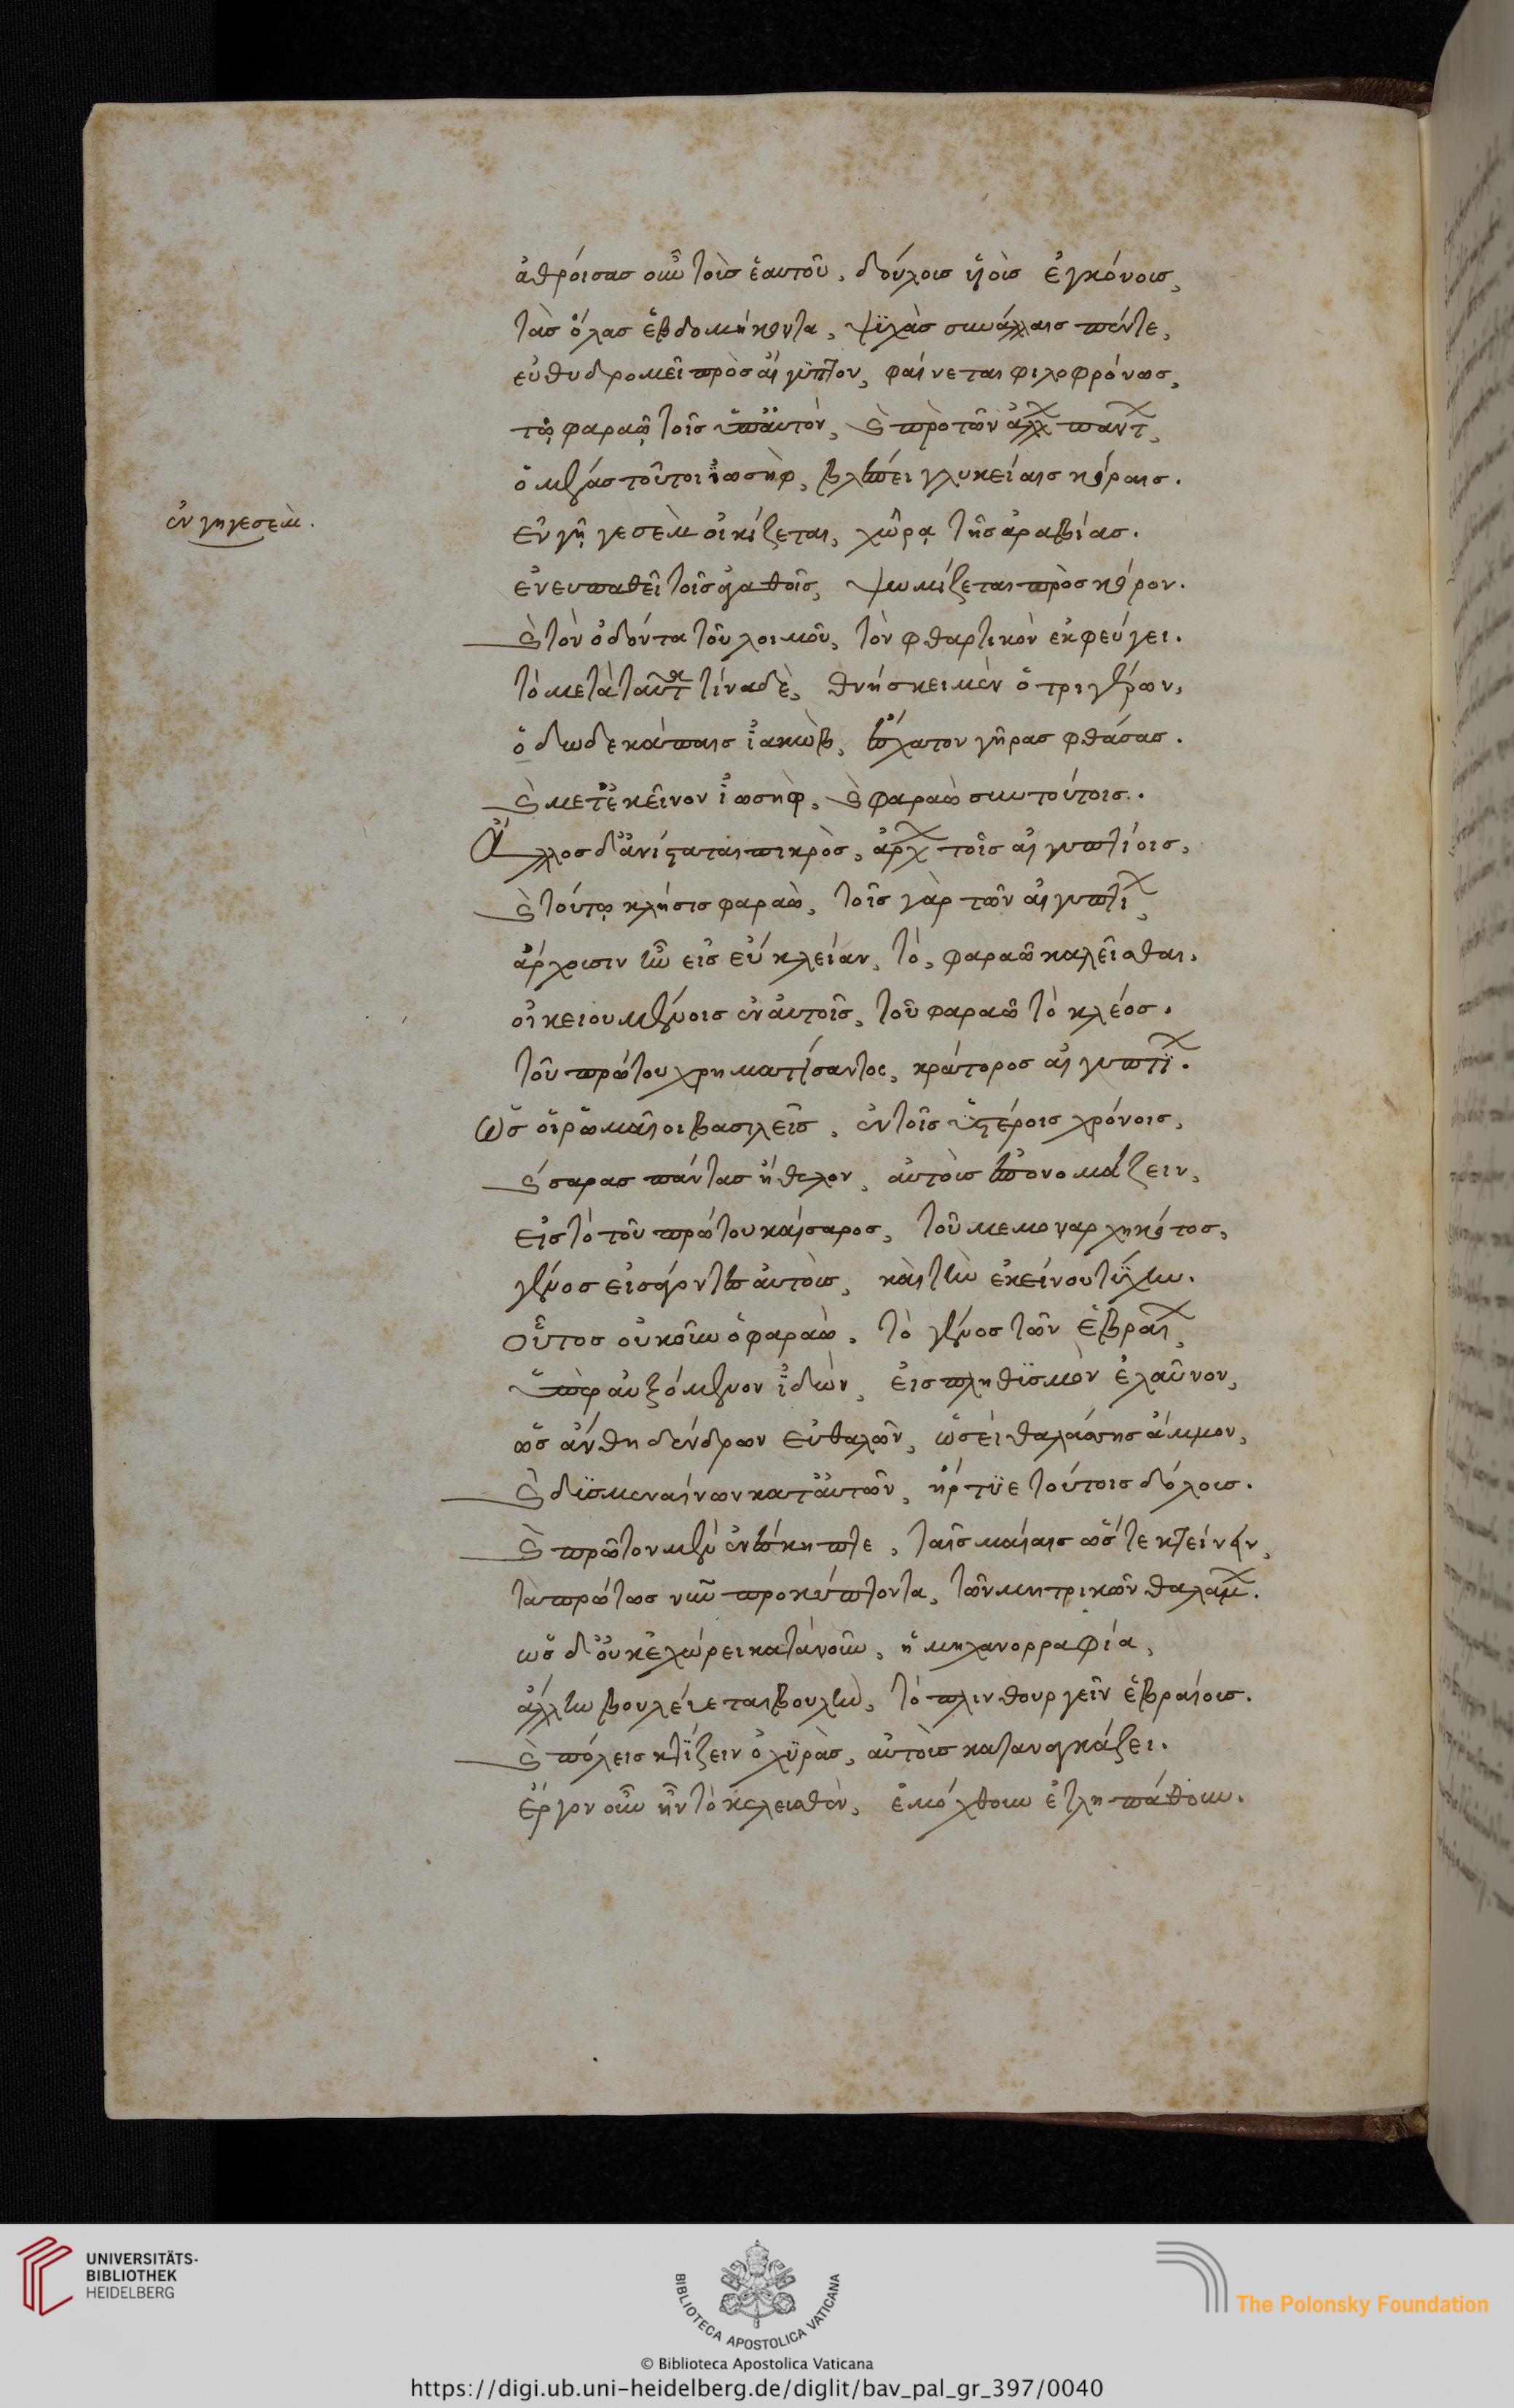 ἀθροίσας οὖν τοὺς ἑαυτοῦ, δούλους υἱοὺς ἐγκόνους,
τὰς ὅλας ἑβδομήκοντα, ψυχὰς σὺν ἄλλαις πέντε,
εὐθυδρομεῖ πρὸς αἴγυπτον, φαίνεται φιλοφρόνως,
ἐν γῇ γεσέμ.
τῷ φαραῷ τοῖς ὑπ' αὐτὸν, καὶ πρὸ τῶν ἄλλων πάντων,
ὁ μείζας τοῦτοι ἰωσὴφ, βλέπει γλυκείαις κόραις.
ἐν γῇ γεσὲμ οἰκίζεται, χώρᾳ τῆς ἀραβίας.
ἐνευπαθεῖ τοῖς ἀγαθοῖς, ψωμίζεται πρὸς κόρον.
καὶ τὸν ὀδόντα τοῦ λοιμοῦ, τὸν φθαρτικὸν ἐκφεύγει.
τὸ μετὰ ταῦτα τίνα δὲ, θνήσκει μὲν ὁ τριγέρων,
ὁ δωδεκάπαις ἰακὼβ, ἔσχατον γῆρας φθάσας.
καὶ μετ' ἐκεῖνον ἰωσὴφ, καὶ φαραὼ σὺν τούτοις.
Ἄλλος δ' ἀνίσταται πικρὸς, ἄρχων τοῖς αἰγυπτίοις,
καὶ τούτῳ κλῆσις φαραὼ, τοῖς γὰρ τῶν αἰγυπτίων
ἄρχουσιν ἦν εἰς εὔκλειαν, τὸ, φαραὼ καλεῖσθαι.
οἰκειουμένοις ἐν αὐτοῖς, τοῦ φαραὼ τὸ κλέος.
τοῦ πρώτου χρηματίσαντος, κράτορος αἰγυπτίων.
ὡς οἱ ῥωμαῖοι βασιλεῖς, ἐν τοῖς ὑστέροις χρόνοις,
καίσαρας πάντας ἤθελον, αὐτοὺς ἐπονομάζειν,
εἰς τὸ τοῦ πρώτου καίσαρος, τοῦ μεμοναρχηκότος,
γένος εἰσάγοντες αὐτοὺς, καὶ τὴν ἐκείνου τύχην.
οὗτος οὐκοῦν ὁ φαραὼ, τὸ γένος τῶν ἑβραίων,
ὑπεραυξόμενον ἰδὼν, εἰς πληθυσμὸν ἐλαῦνον,
ὡς ἄνθη δένδρων εὐθαλῶν, ὡσεὶ θαλάσσης ἄμμον,
καὶ δυσμεναίνων κατ' αὐτῶν, ἤρτυε τούτοις δόλους.
καὶ πρῶτον μὲν ἐνέσκηπτε, ταῖς μαίαις ὥστε κτείνειν,
τὰ πρώτως νῦν προκύπτοντα, τῶν μητρικῶν θαλάμων.
ὡς δ' οὐκ ἐχώρει κατὰ νοῦν, ἡ μηχανορραφία,
ἄλλην βουλεύεται βουλὴν, τὸ πλινθουργεῖν ἑβραίους.
καὶ πόλεις κτίζειν ὀχυρὰς, αὐτοὺς καταναγκάζει.
ἔργον οὖν ἦν τὸ κελευσθὲν, ἐμόχθουν ἔτλη πάθουν.
UNIVERSITÄTS-
BIBLIOTHEK
HEIDELBERG
BIBLIOTECA APOSTOLICA VATICANA
The Polonsky Foundation
© Biblioteca Apostolica Vaticana
https://digi.ub.uni-heidelberg.de/diglit/bav_pal_gr_397/0040